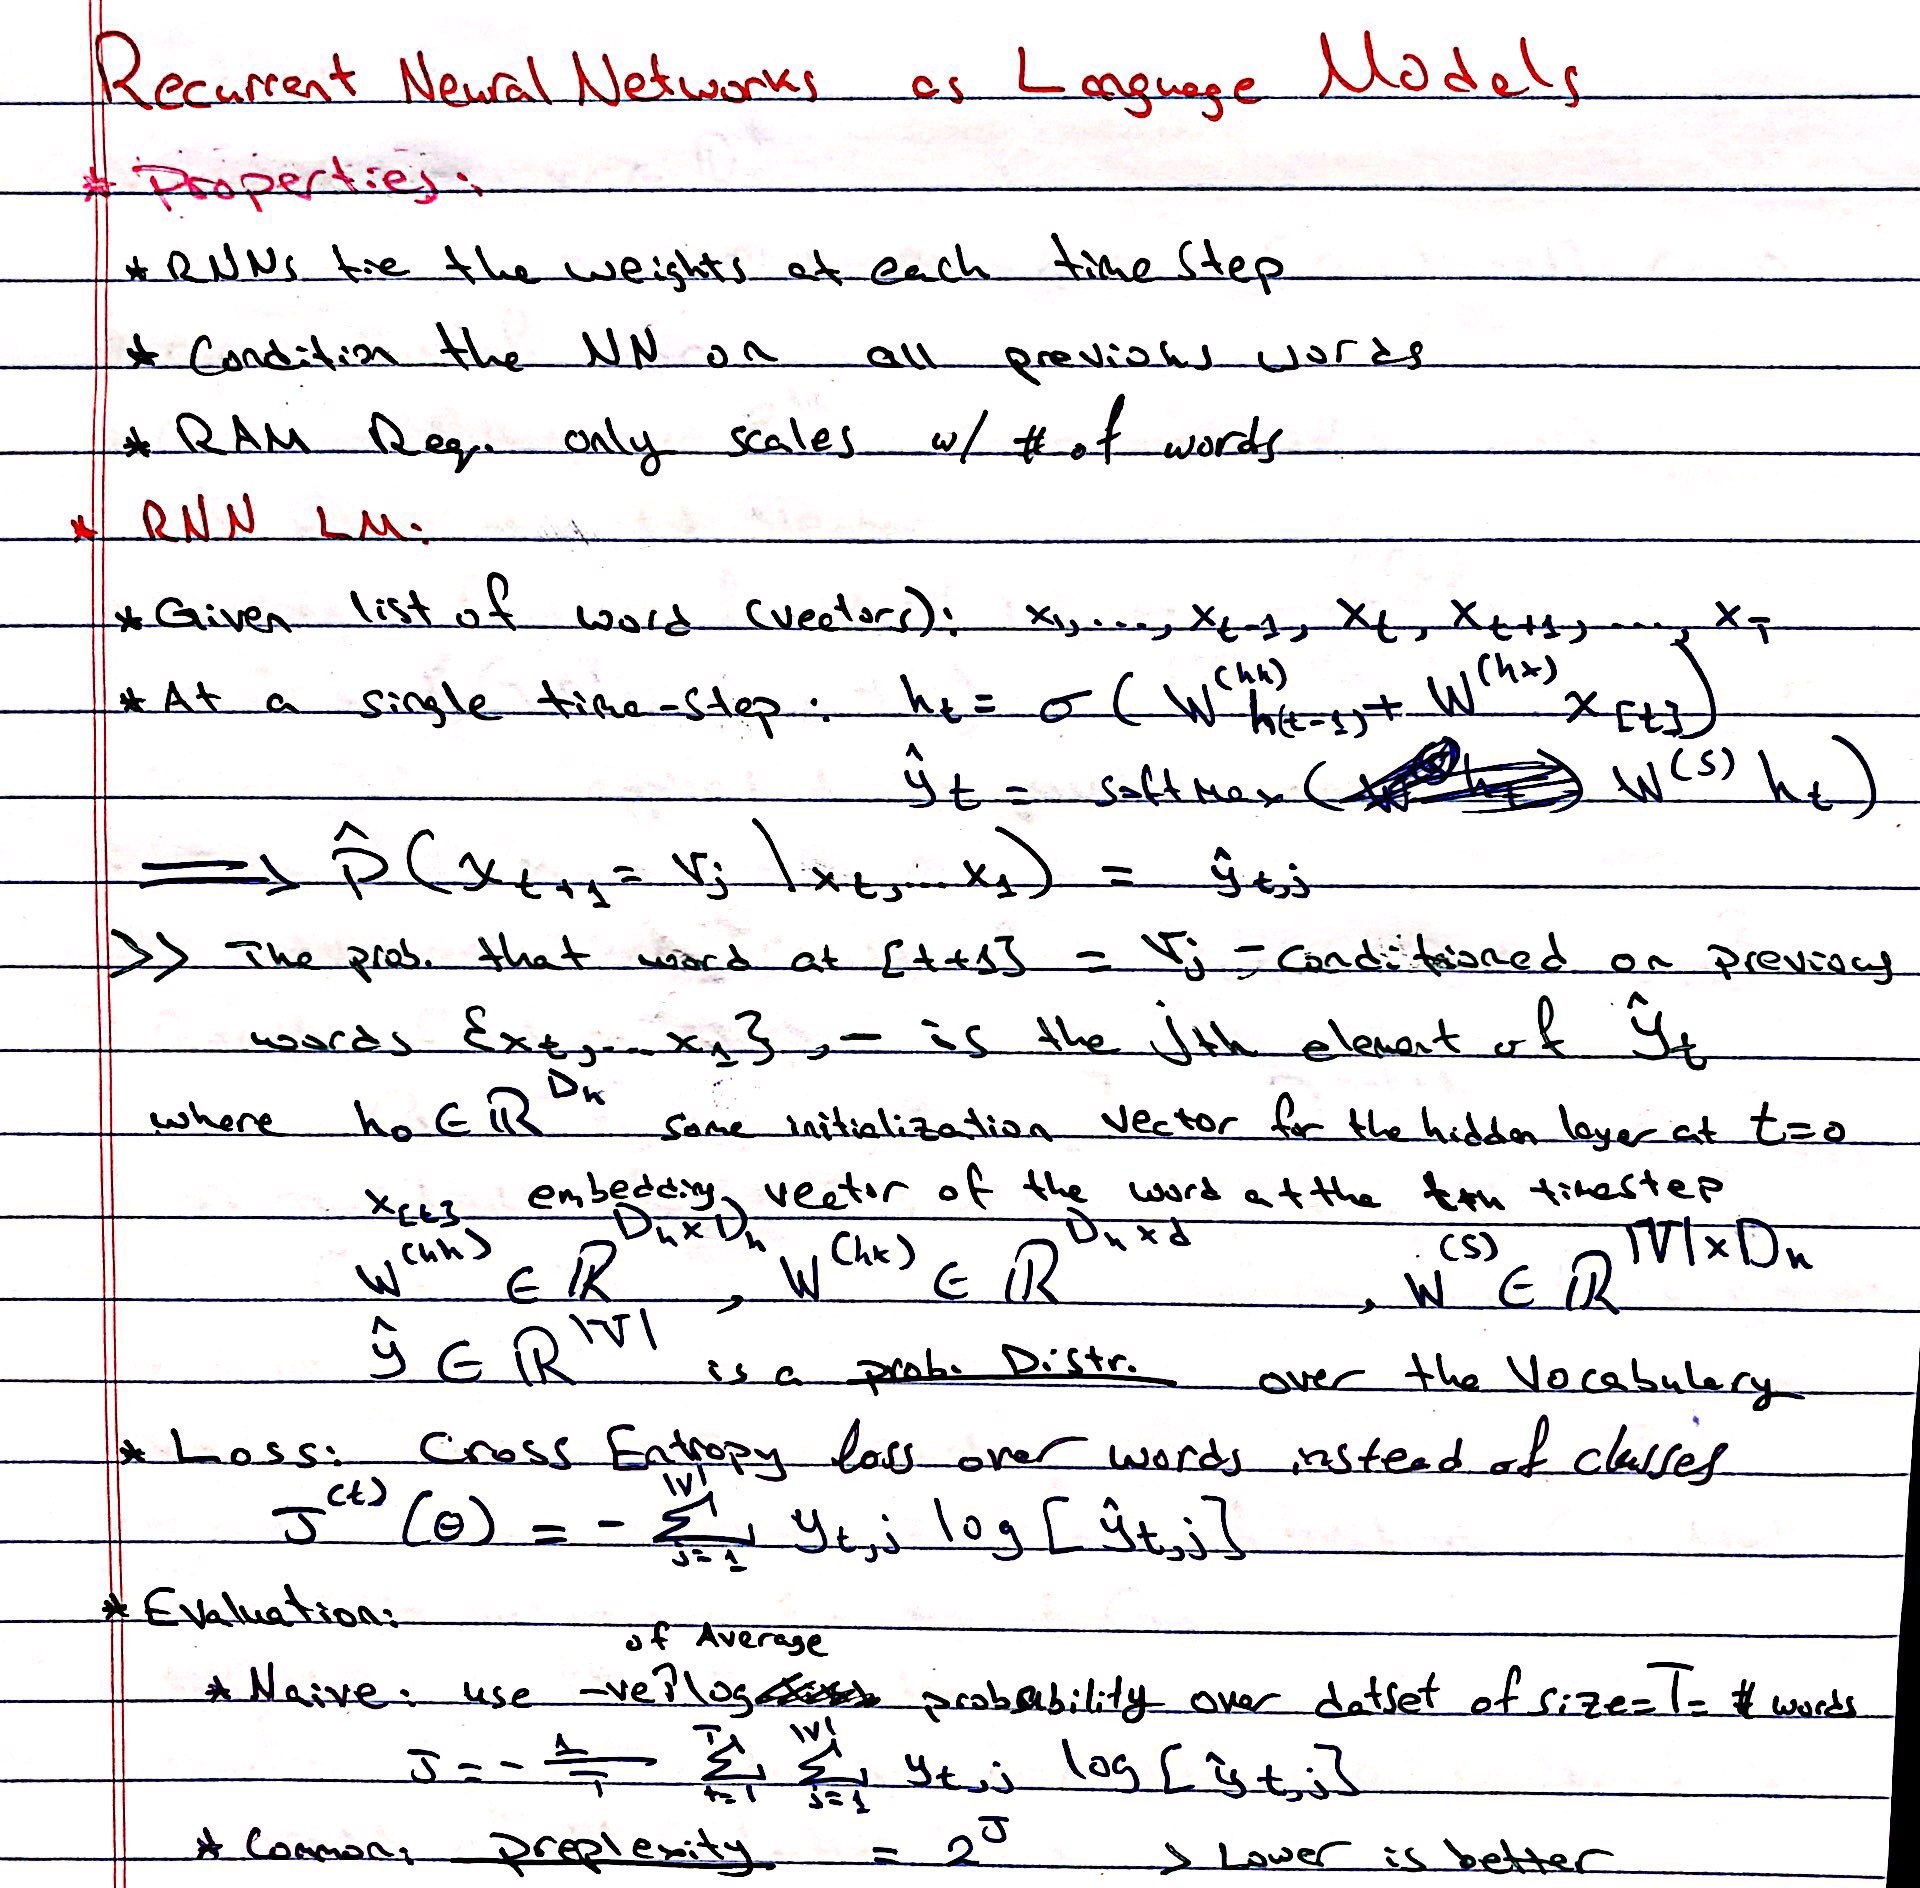 Recurrent Neural Networks as Language Models
* Properties:
* RNNs tie the weights at each time step
* Condition the NN on all previous words
* RAM Req. only scales w/ # of words
* RNN LM:
* Given list of word (vectors): x₁, ..., x_{t-1}, x_t, x_{t+1}, ..., x_T
* At a single time-step: h_t = σ( W^{(hh)} h_{(t-1)} + W^{(hx)} x_{[t]} )
ŷ_t = softmax ( W^{(S)} h_t )
⟹ P̂( x_{t+1} = v_j | x_t, ... x_1 ) = ŷ_{t,j}
>> The prob. that word at [t+1] = v_j - conditioned on previous
words {x_t, ... x_1}, - is the jth element of ŷ_t
where h_0 ∈ ℝ^{D_h} some initialization vector for the hidden layer at t=0
x_{[t]} embedding vector of the word at the t_th timestep
W^{(hh)} ∈ ℝ^{D_h x D_h}, W^{(hx)} ∈ ℝ^{D_h x d}, W^{(S)} ∈ ℝ^{|V| x D_h}
ŷ ∈ ℝ^{|V|} is a prob. Distr. over the Vocabulary
* Loss: Cross Entropy loss over words instead of classes
J^{(t)}(θ) = - Σ_{j=1}^{|V|} y_{t,j} log [ ŷ_{t,j} ]
* Evaluation:
of Average
* Naive: use -ve log probability over datset of size = T = # words
J = - 1/T Σ_{t=1}^{T} Σ_{j=1}^{|V|} y_{t,j} log [ ŷ_{t,j} ]
* Common: preplexity = 2^J > Lower is better